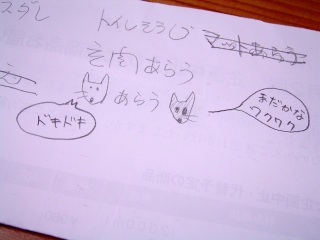 スダレ
トイレそうじ
マットあらう
あらう
あらう
ドキドキ
まだかな
ワクワク